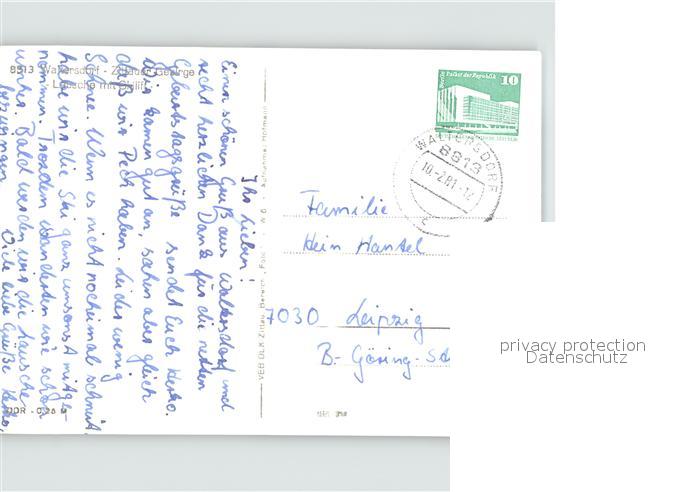 8813 Waltersdorf - Zittauer Gebirge
- Lausche mit Skilift -
Ihr Lieben!
Einen schönen Gruß aus Waltersdorf und
recht herzlichen Dank für die netten
Geburtstagsgrüße sendet Euch
Wir kamen gut an, sahen aber gleich
daß wir Pech haben. Leider wenig
Schnee. Wenn es nicht nocheinmal schneit,
haben wir die Ski ganz umsonst mitge-
nommen. Trotzdem wanderten wir schon
umher. Bald werden wir die Lausche
bezwingen.
Viele liebe Grüße
DDR - 0,26 M
VEB DLK Zittau, Bereich Foto
Aufnahme: Hofmann
Berlin, Palast der Republik
10
DDR
WALTERSDORF
8813
10.-2.81-12
Familie
Hein Hantel
7030 Leipzig
B.-Göring-St
privacy protection
Datenschutz